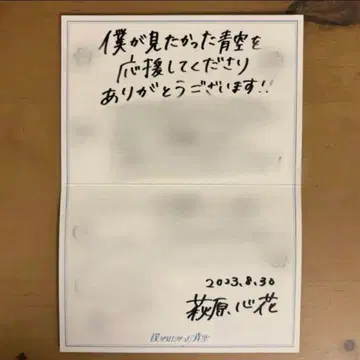 僕が見たかった青空を
応援してくださり
ありがとうございます!!
2023.8.30
萩原心花
僕が見たかった青空